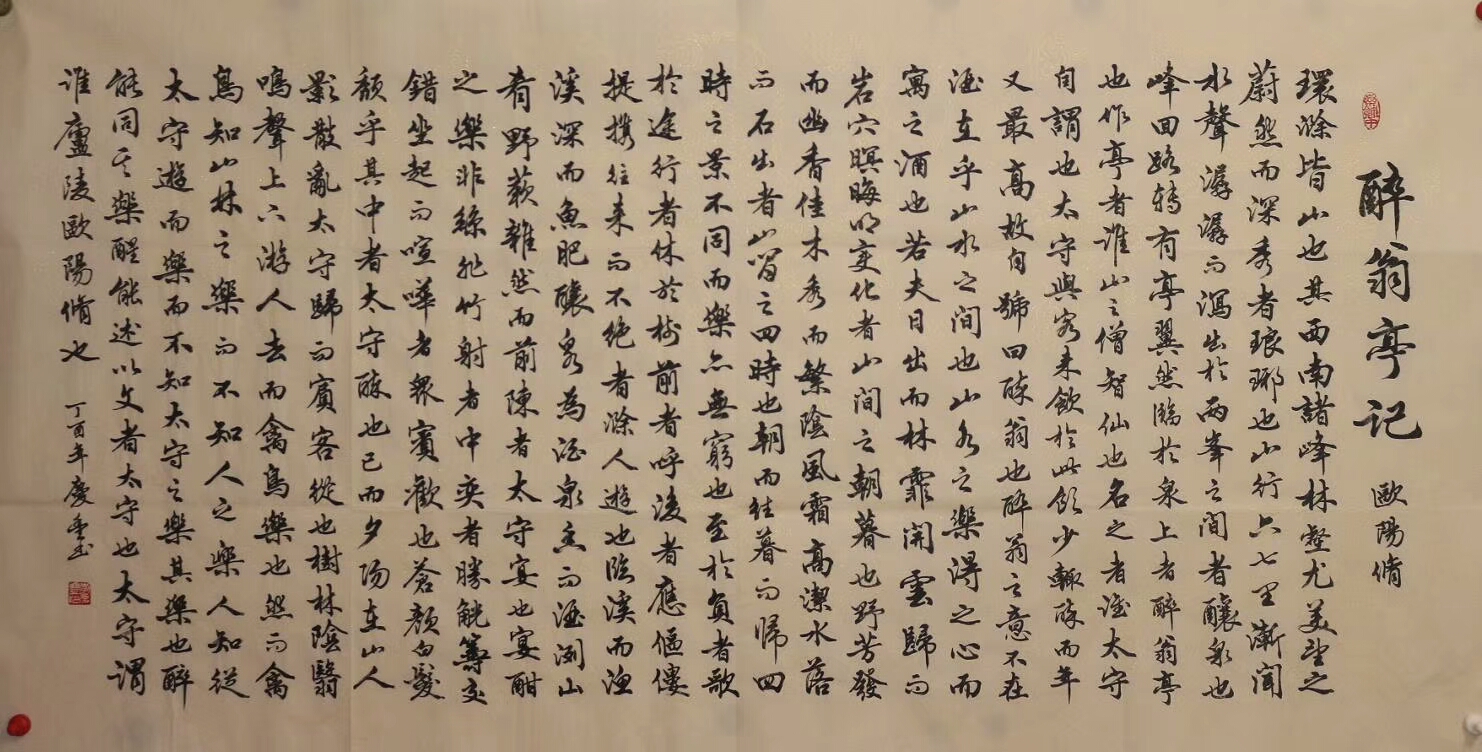 醉翁亭记
歐陽脩
環滁皆山也其西南諸峰林壑尤美望之
蔚然而深秀者琅琊也山行六七里漸聞
水聲潺潺而瀉出於兩峯之間者釀泉也
峰回路转有亭翼然臨於泉上者醉翁亭
也作亭者誰山之僧智仙也名之者誰太守
自謂也太守與客来飲於此飲少輒醉而年
又最高故自號曰醉翁也醉翁之意不在
酒在乎山水之间也山水之樂得之心而
寓之酒也若夫日出而林霏開雲歸而
岩穴暝晦明变化者山间之朝暮也野芳發
而幽香佳木秀而繁陰風霜高潔水落
而石出者山间之四時也朝而往暮而归四
時之景不同而樂亦無窮也至於負者歌
於途行者休於樹前者呼後者應傴僂
提携往来而不绝者滁人遊也临溪而渔
溪深而魚肥釀泉為酒泉香而酒洌山
肴野蔌雜然而前陳者太守宴也宴酣
之樂非絲非竹射者中奕者勝觥籌交
錯坐起而喧嘩者衆賓歡也蒼颜白髮
頹乎其中者太守醉也已而夕阳在山人
影散亂太守歸而賓客從也樹林陰翳
鳴聲上下游人去而禽鳥樂也然而禽
鳥知山林之樂而不知人之樂人知從
太守遊而樂而不知太守之樂其樂也醉
能同其樂醒能述以文者太守也太守謂
谁廬陵歐陽脩也
丁酉年慶重书